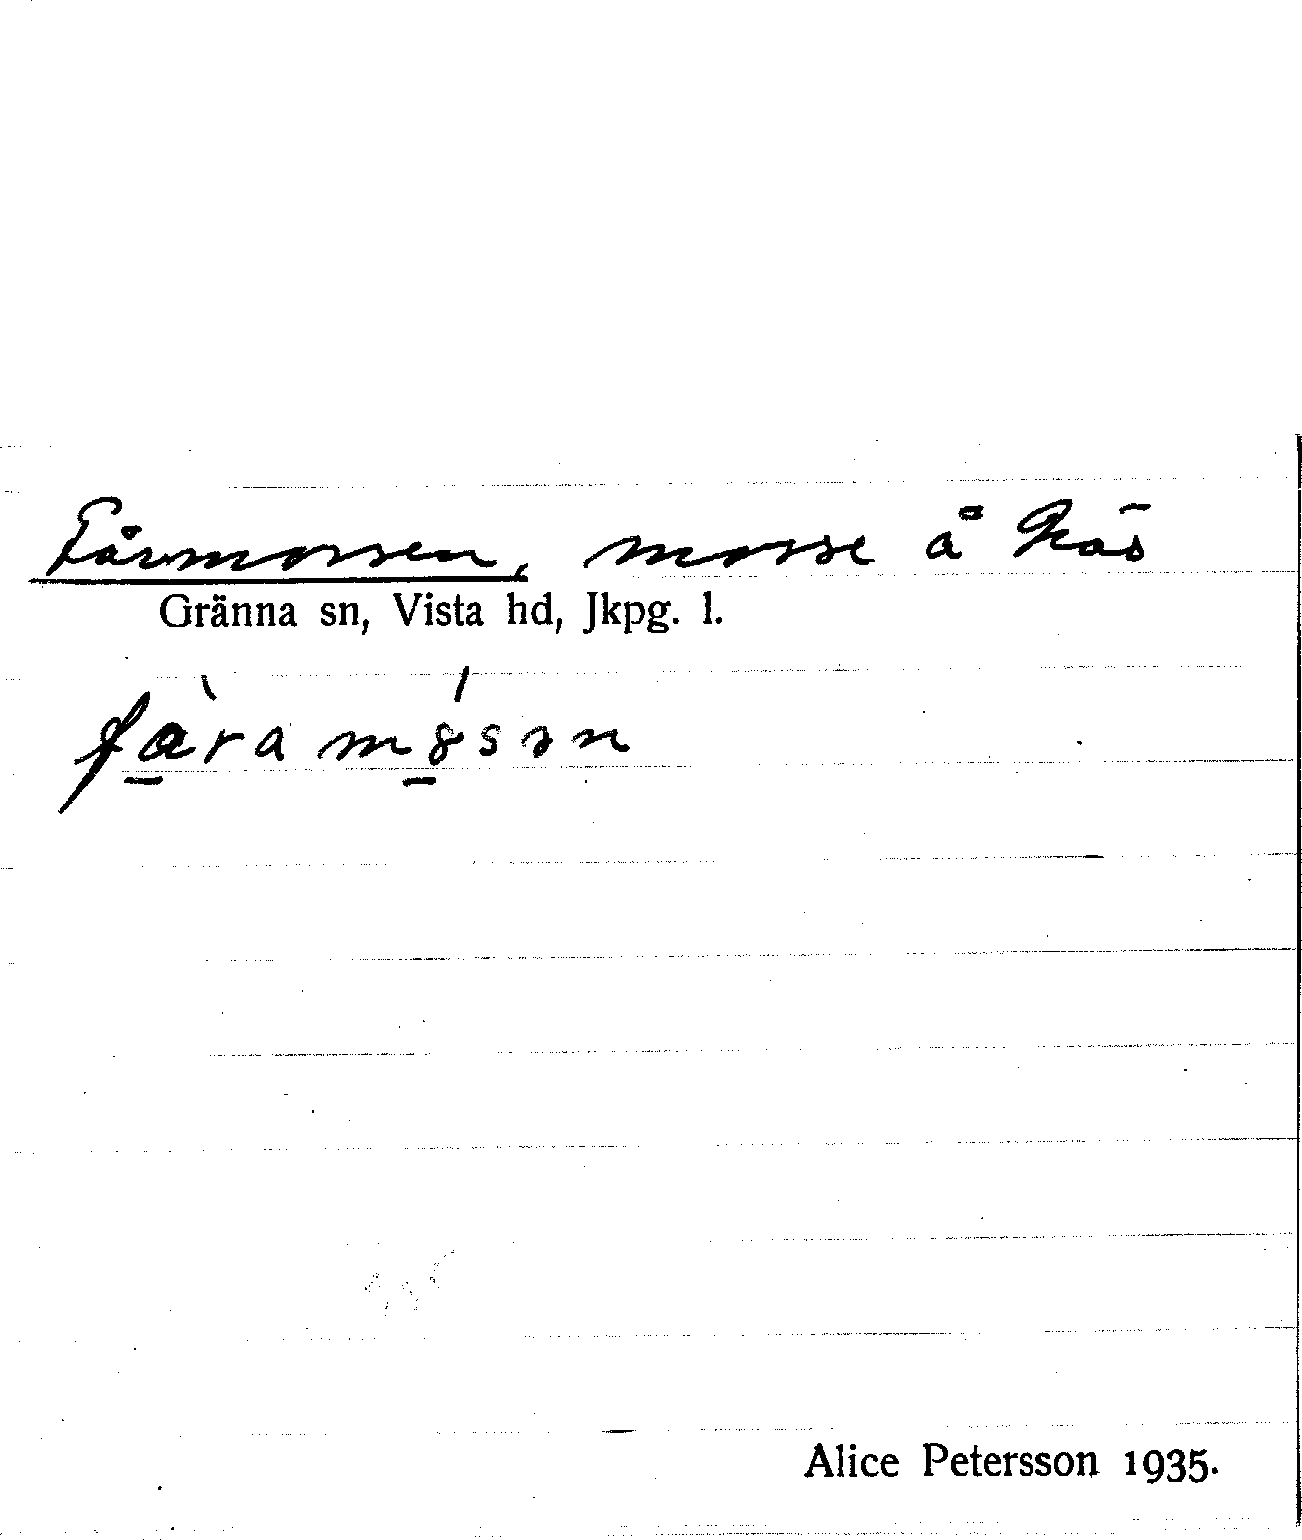 Fårmossen, mosse å Näs
Gränna sn, Vista hd, Jkpg. l.
Alice Petersson 1935.